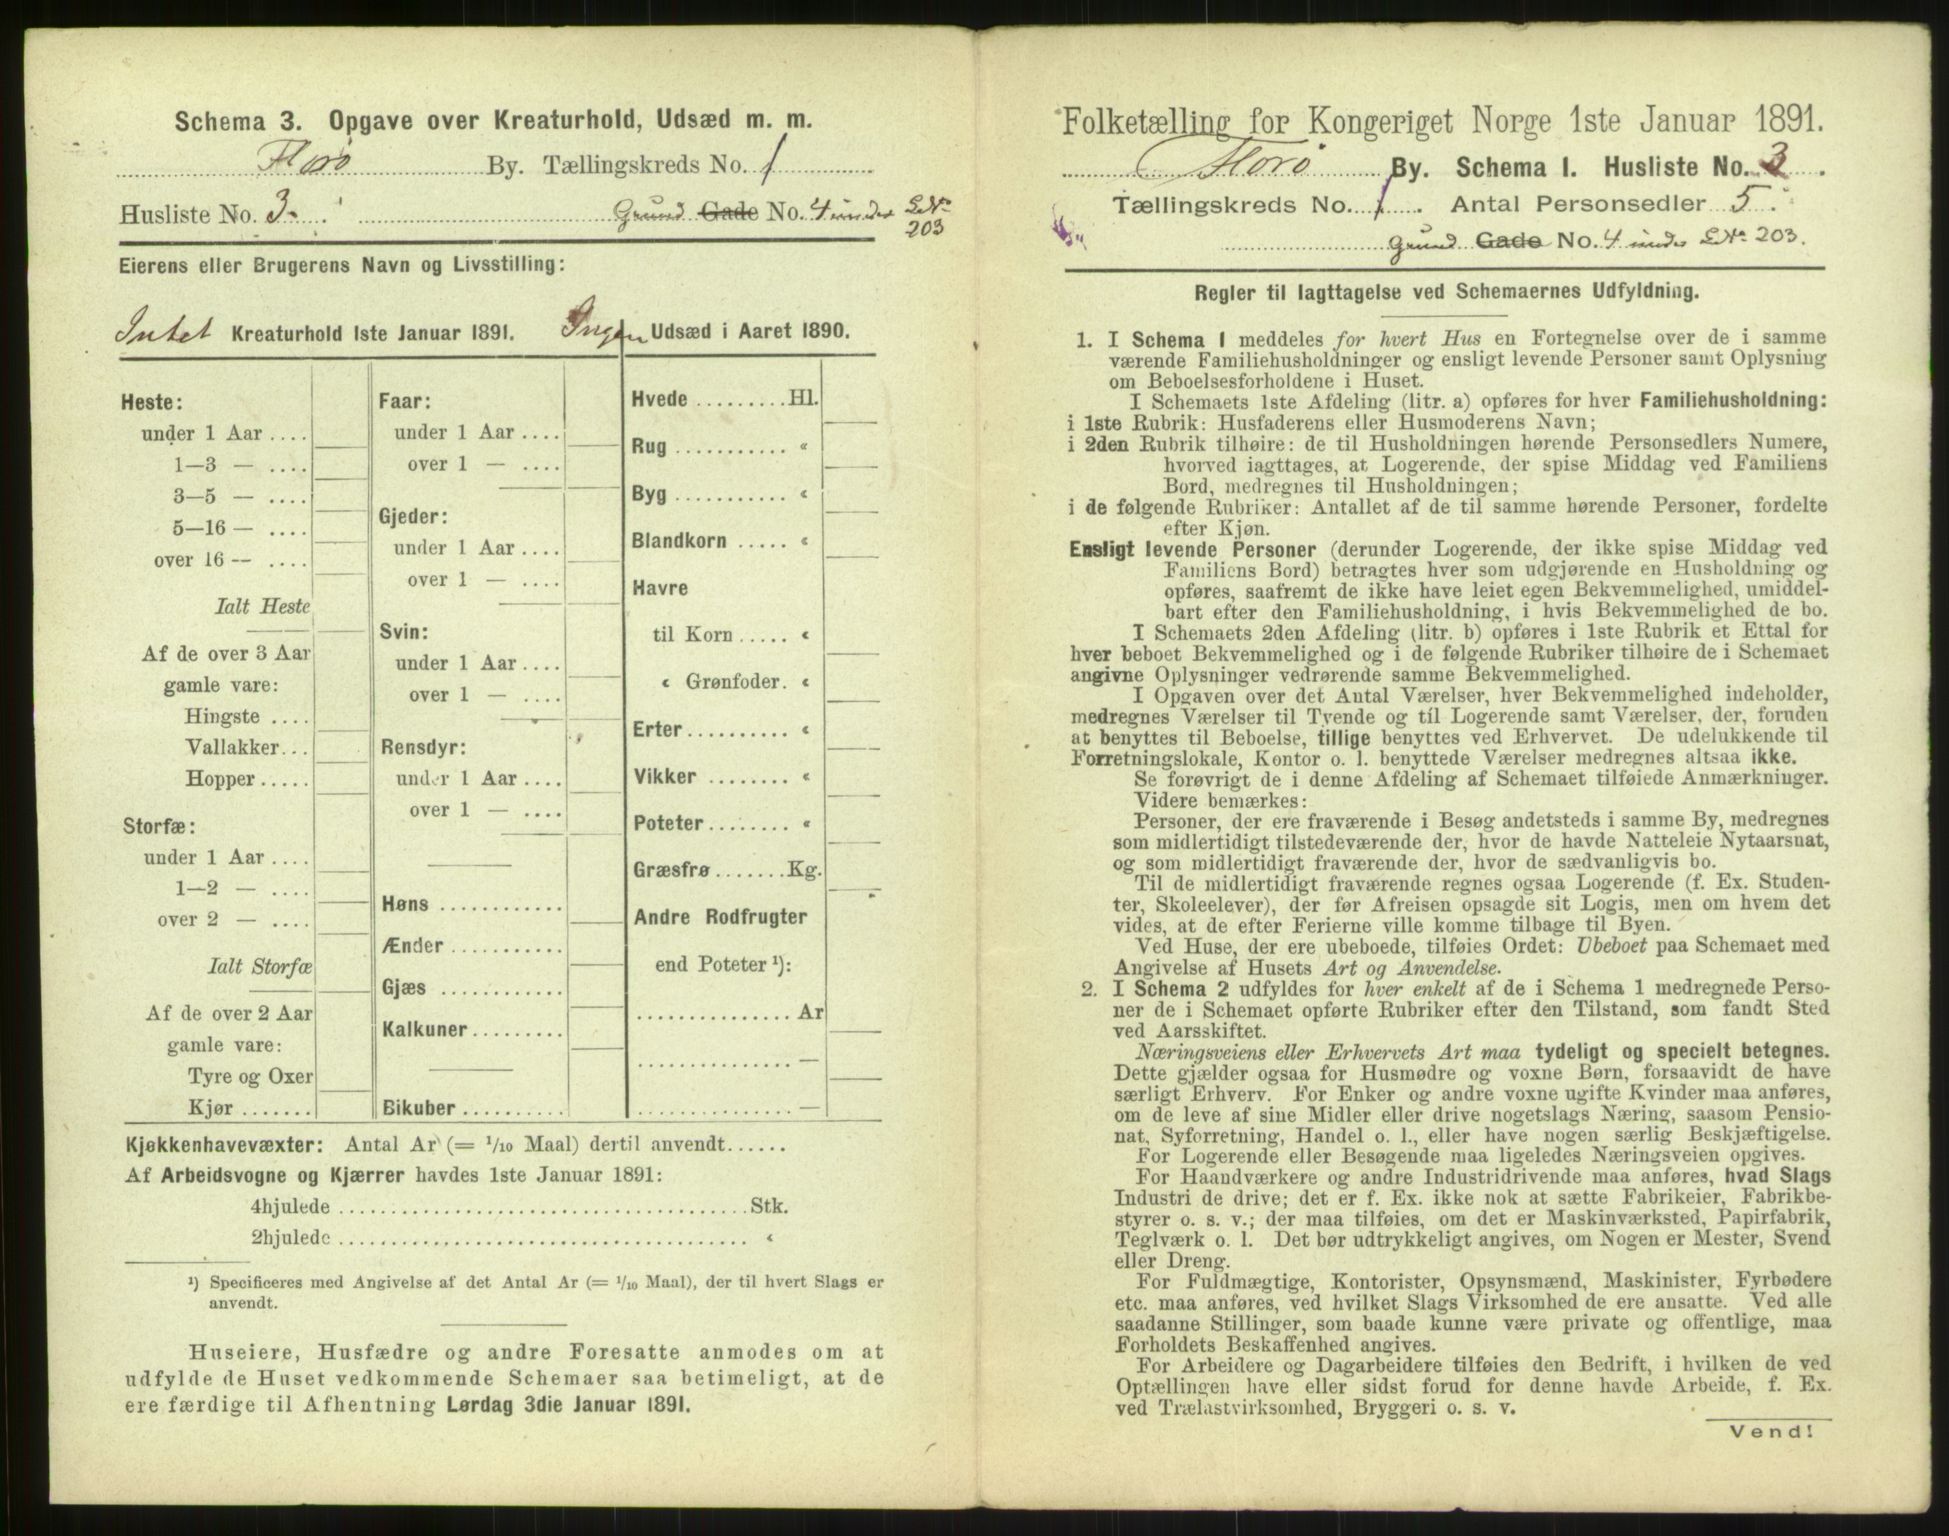 Schema 3. Opgave over Kreaturhold, Udsæd m. m.
Florö By. Tællingskreds No. 1
Husliste No. 3. Grund Gade No. 4 under L.No 203
Eierens eller Brugerens Navn og Livsstilling:
Intet Kreaturhold 1ste Januar 1891. Ingen Udsæd i Aaret 1890.
Heste:
under 1 Aar ....
1—3 — ....
3—5 — ....
5—16 — ....
over 16 — ....
Ialt Heste
Af de over 3 Aar
gamle vare:
Hingste ....
Vallakker...
Hopper.....
Storfæ:
under 1 Aar ....
1—2 — ....
over 2 — ....
Ialt Storfæ
Af de over 2 Aar
gamle vare:
Tyre og Oxer
Kjør .......
Faar:
under 1 Aar ....
over 1 — ....
Gjeder:
under 1 Aar ....
over 1 — ....
Svin:
under 1 Aar ....
over 1 — ....
Rensdyr:
under 1 Aar ....
over 1 — ....
Høns ............
Ænder ...........
Gjæs ............
Kalkuner.........
Bikuber ..........
Hvede .........Hl.
Rug ........... «
Byg ........... «
Blandkorn ..... «
Havre
til Korn ..... «
« Grønfoder. «
Erter.......... «
Vikker ........ «
Poteter........ «
Græsfrø .......Kg.
Andre Rodfrugter
end Poteter ¹):
............... Ar
............... —
............... —
Kjøkkenhavevæxter: Antal Ar (= 1/10 Maal) dertil anvendt......
Af Arbeidsvogne og Kjærrer havdes 1ste Januar 1891:
4hjulede ....................................Stk.
2hjulede .................................... «
¹) Specificeres med Angivelse af det Antal Ar (= 1/10 Maal), der til hvert Slags er
anvendt.
Huseiere, Husfædre og andre Foresatte anmodes om at
udfylde de Huset vedkommende Schemaer saa betimeligt, at de
ere færdige til Afhentning Lørdag 3die Januar 1891.
Folketælling for Kongeriget Norge 1ste Januar 1891.
Florö By. Schema I. Husliste No. 3.
Tællingskreds No. 1. Antal Personsedler 5.
Grund Gade No. 4 under L.No 203.
Regler til Iagttagelse ved Schemaernes Udfyldning.
1. I Schema I meddeles for hvert Hus en Fortegnelse over de i samme
værende Familiehusholdninger og ensligt levende Personer samt Oplysning
om Beboelsesforholdene i Huset.
I Schemaets 1ste Afdeling (litr. a) opføres for hver Familiehusholdning:
i 1ste Rubrik: Husfaderens eller Husmoderens Navn;
i 2den Rubrik tilhøire: de til Husholdningen hørende Personsedlers Numere,
hvorved iagttages, at Logerende, der spise Middag ved Familiens
Bord, medregnes til Husholdningen;
i de følgende Rubriker: Antallet af de til samme hørende Personer, fordelte
efter Kjøn.
Ensligt levende Personer (derunder Logerende, der ikke spise Middag ved
Familiens Bord) betragtes hver som udgjørende en Husholdning og
opføres, saafremt de ikke have leiet egen Bekvemmelighed, umiddel-
bart efter den Familiehusholdning, i hvis Bekvemmelighed de bo.
I Schemaets 2den Afdeling (litr. b) opføres i 1ste Rubrik et Ettal for
hver beboet Bekvemmelighed og i de følgende Rubriker tilhøire de i Schemaet
angivne Oplysninger vedrørende samme Bekvemmelighed.
I Opgaven over det Antal Værelser, hver Bekvemmelighed indeholder,
medregnes Værelser til Tyende og til Logerende samt Værelser, der, foruden
at benyttes til Beboelse, tillige benyttes ved Erhvervet. De udelukkende til
Forretningslokale, Kontor o. l. benyttede Værelser medregnes altsaa ikke.
Se forøvrigt de i denne Afdeling af Schemaet tilføiede Anmærkninger.
Videre bemærkes:
Personer, der ere fraværende i Besøg andetsteds i samme By, medregnes
som midlertidigt tilstedeværende der, hvor de havde Natteleie Nytaarsnat,
og som midlertidigt fraværende der, hvor de sædvanligvis bo.
Til de midlertidigt fraværende regnes ogsaa Logerende (f. Ex. Studen-
ter, Skoleelever), der før Afreisen opsagde sit Logis, men om hvem det
vides, at de efter Ferierne ville komme tilbage til Byen.
Ved Huse, der ere ubeboede, tilføies Ordet: Ubeboet paa Schemaet med
Angivelse af Husets Art og Anvendelse.
2. I Schema 2 udfyldes for hver enkelt af de i Schema 1 medregnede Perso-
ner de i Schemaet opførte Rubriker efter den Tilstand, som fandt Sted
ved Aarsskiftet.
Næringsveiens eller Erhvervets Art maa tydeligt og specielt betegnes.
Dette gjælder ogsaa for Husmødre og voxne Børn, forsaavidt de have
særligt Erhverv. For Enker og andre voxne ugifte Kvinder maa anføres,
om de leve af sine Midler eller drive nogetslags Næring, saasom Pensio-
nat, Syforretning, Handel o. l., eller have nogen særlig Beskjæftigelse.
For Logerende eller Besøgende maa ligeledes Næringsveien opgives.
For Haandværkere og andre Industridrivende maa anføres, hvad Slags
Industri de drive; det er f. Ex. ikke nok at sætte Fabrikeier, Fabrikbe-
styrer o. s. v.; der maa tilføies, om det er Maskinværksted, Papirfabrik,
Teglværk o. l. Det bør udtrykkeligt angives, om Nogen er Mester, Svend
eller Dreng.
For Fuldmægtige, Kontorister, Opsynsmænd, Maskinister, Fyrbødere
etc. maa anføres, ved hvilket Slags Virksomhed de ere ansatte. Ved alle
saadanne Stillinger, som baade kunne være private og offentlige, maa
Forholdets Beskaffenhed angives.
For Arbeidere og Dagarbeidere tilføies den Bedrift, i hvilken de ved
Optællingen have eller sidst forud for denne havde Arbeide, f. Ex.
ved Trælastvirksomhed, Bryggeri o. s. v.
Vend!